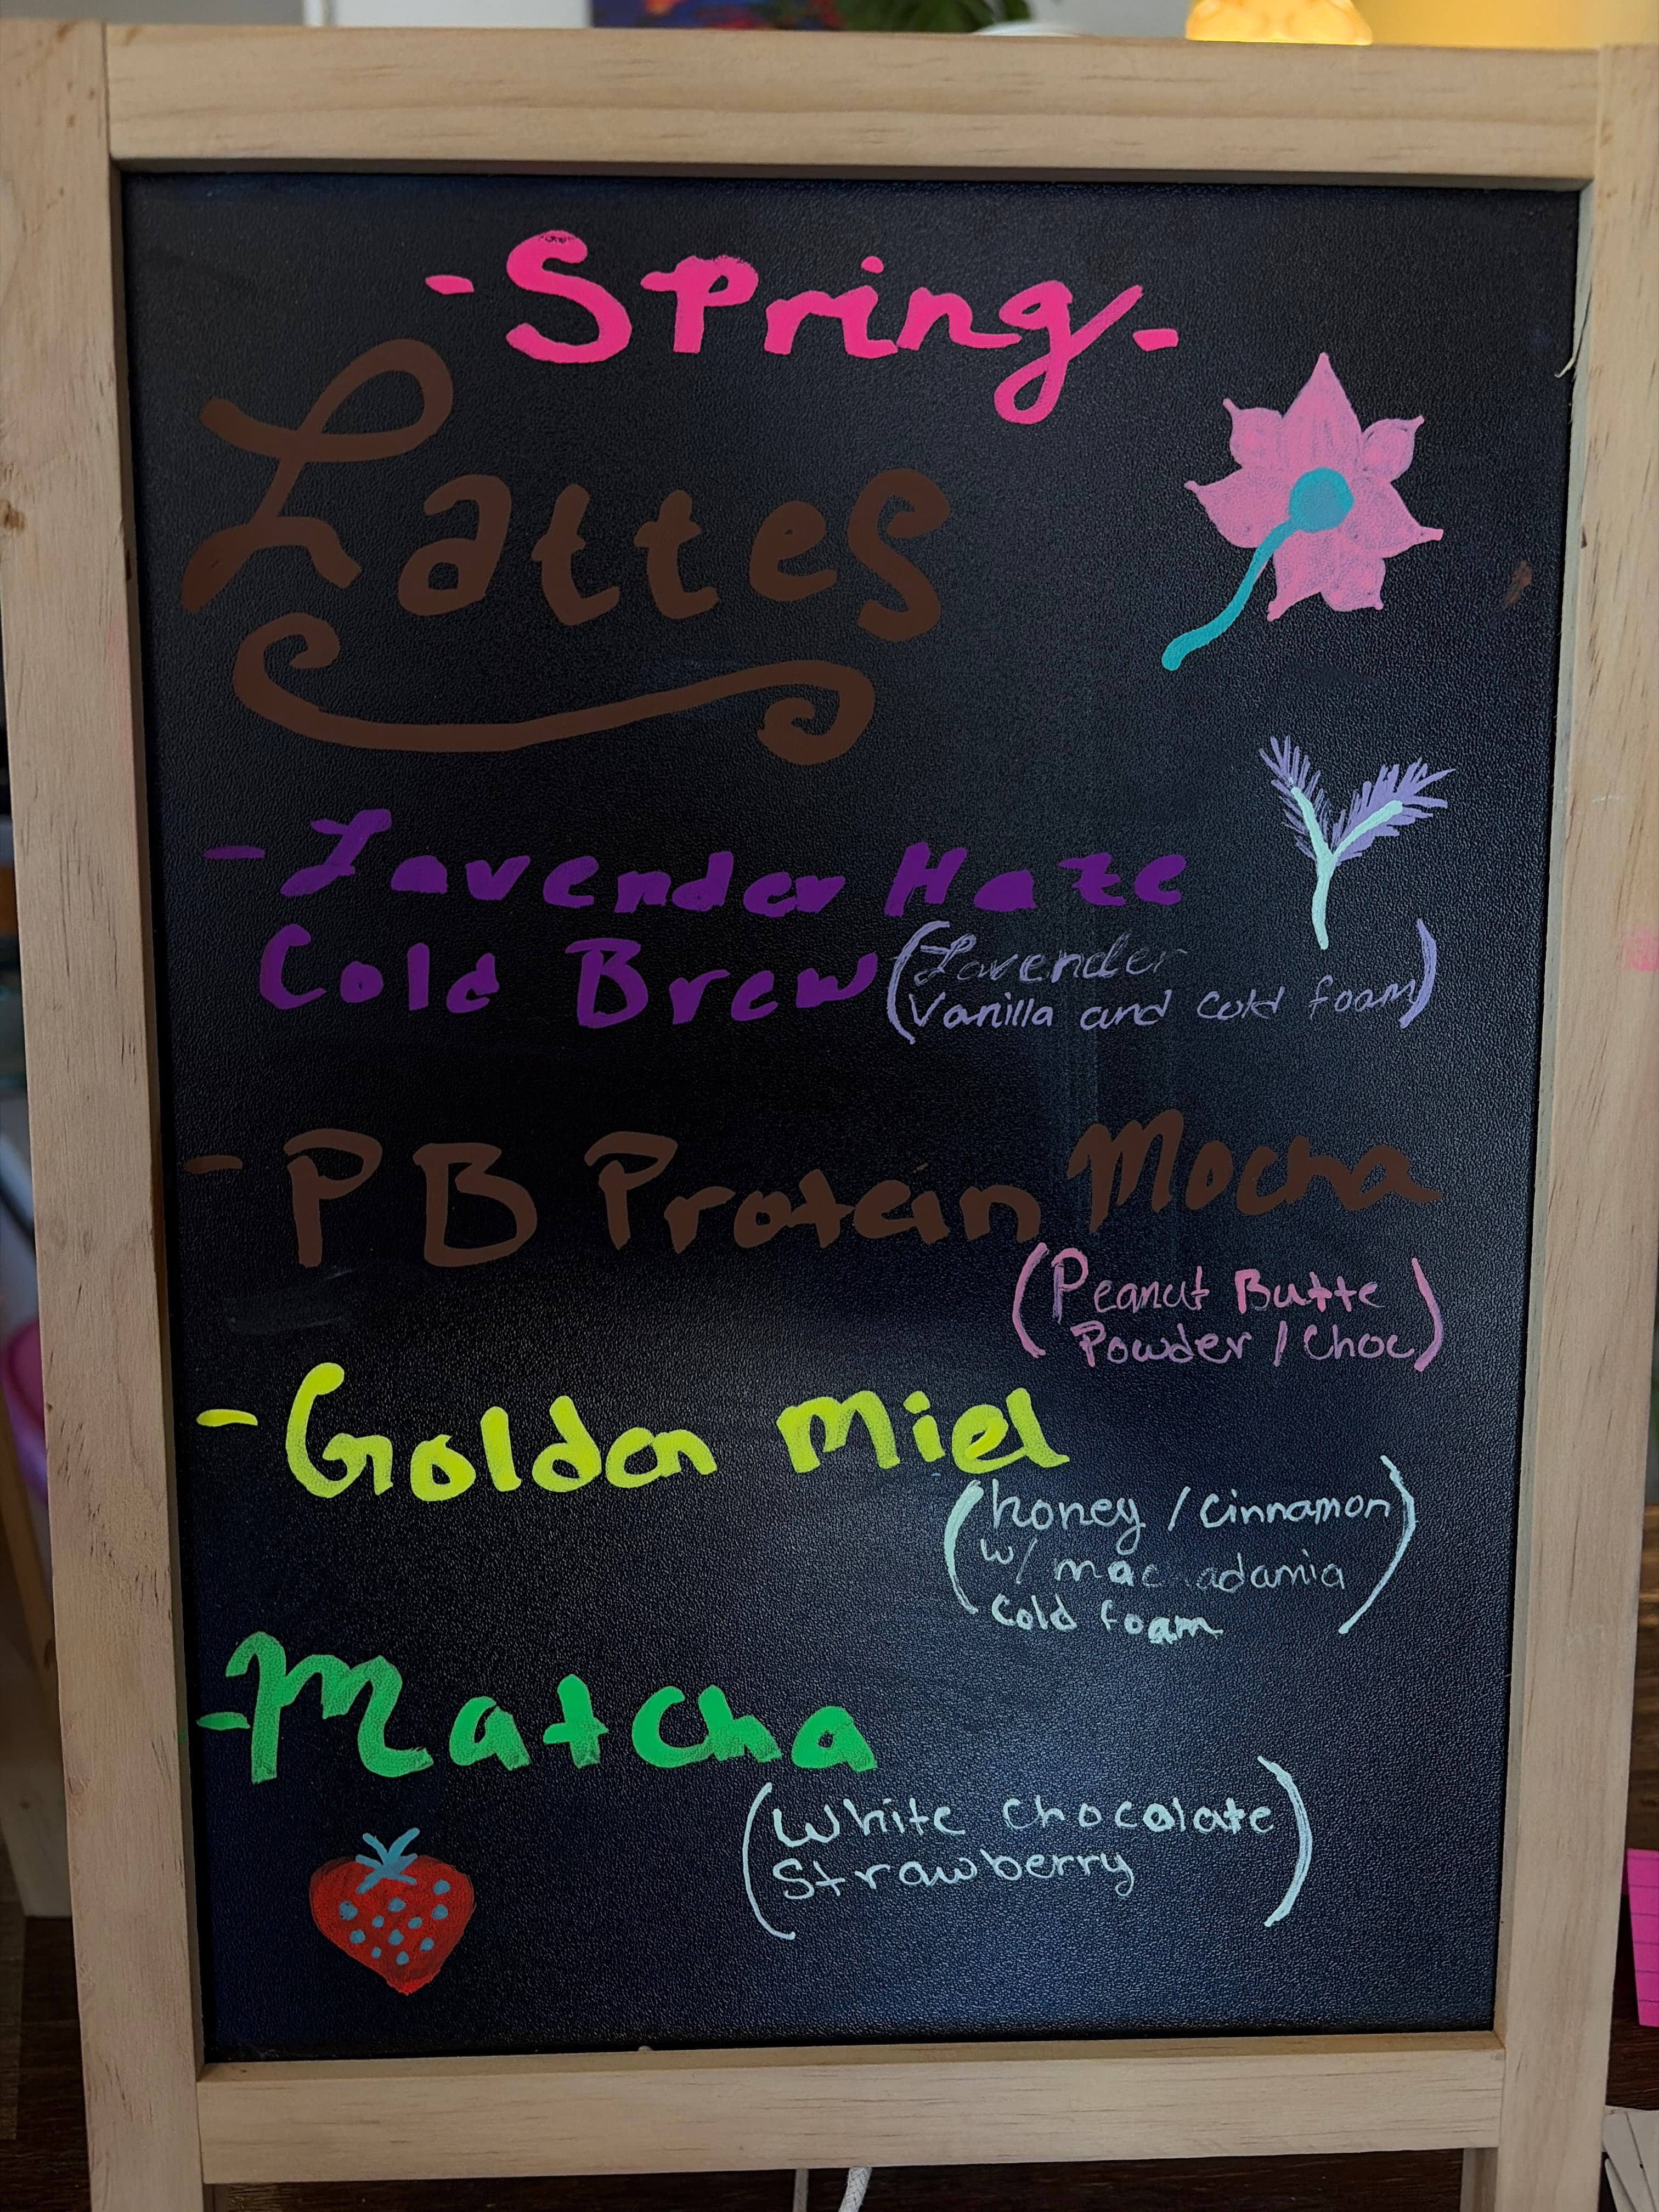 -Spring-
Lattes
- Lavender Haze
Cold Brew (Lavender
Vanilla and cold foam)
- PB Protein Mocha
(Peanut Butte
Powder / Choc)
- Golden Miel
(honey / cinnamon
w/ macadamia
cold foam)
- Matcha
(White chocolate
Strawberry)